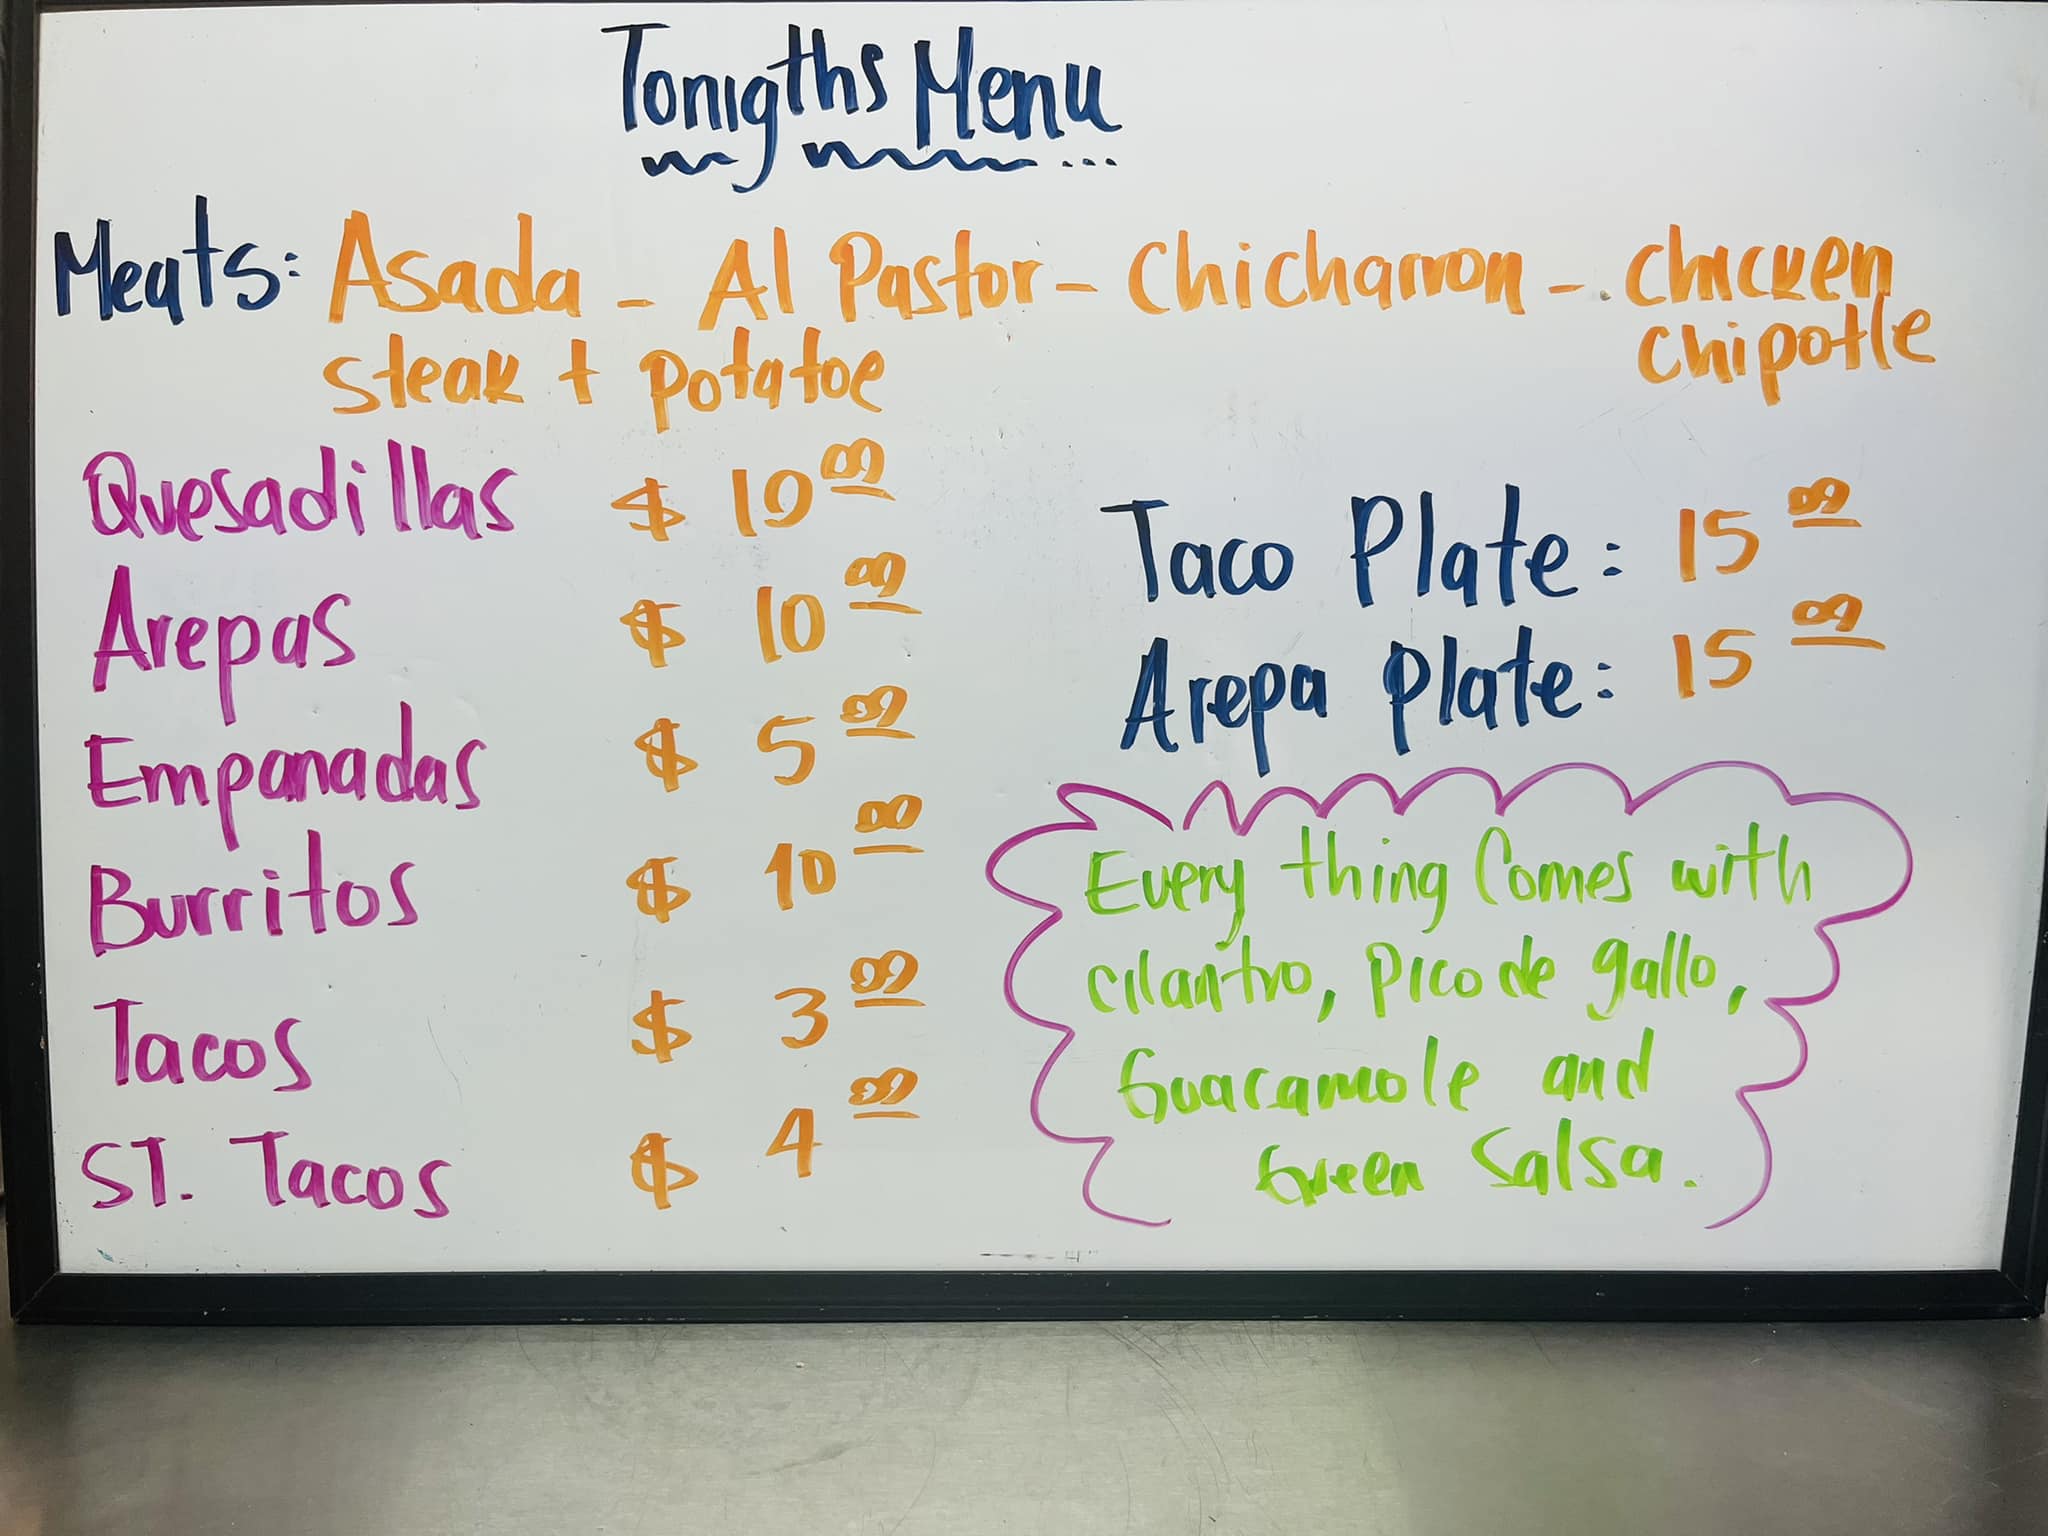 Tonigths Menu
Meats: Asada - Al Pastor - Chicharron - chicken
steak + potatoe chipotle
Quesadillas $ 10 00
Arepas $ 10 00
Empanadas $ 5 00
Burritos $ 10 00
Tacos $ 3 00
ST. Tacos $ 4 00
Taco Plate: 15 00
Arepa Plate: 15 00
Every thing Comes with
cilantro, pico de gallo,
Guacamole and
Green Salsa.